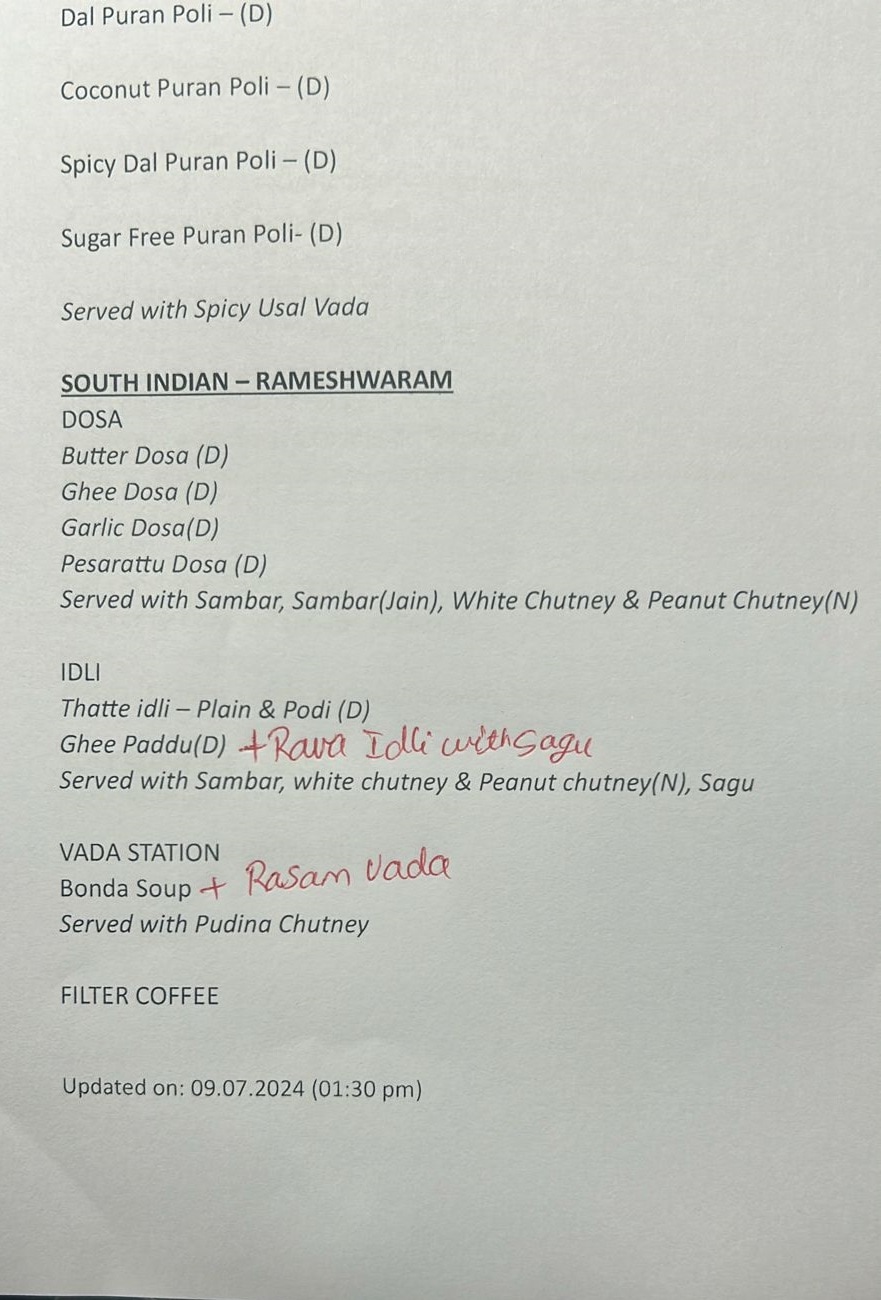 Dal Puran Poli – (D)
Coconut Puran Poli – (D)
Spicy Dal Puran Poli – (D)
Sugar Free Puran Poli- (D)
Served with Spicy Usal Vada
SOUTH INDIAN – RAMESHWARAM
DOSA
Butter Dosa (D)
Ghee Dosa (D)
Garlic Dosa(D)
Pesarattu Dosa (D)
Served with Sambar, Sambar(Jain), White Chutney & Peanut Chutney(N)
IDLI
Thatte idli – Plain & Podi (D)
Ghee Paddu(D) + Rava Idli with Sagu
Served with Sambar, white chutney & Peanut chutney(N), Sagu
VADA STATION
Bonda Soup + Rasam Vada
Served with Pudina Chutney
FILTER COFFEE
Updated on: 09.07.2024 (01:30 pm)